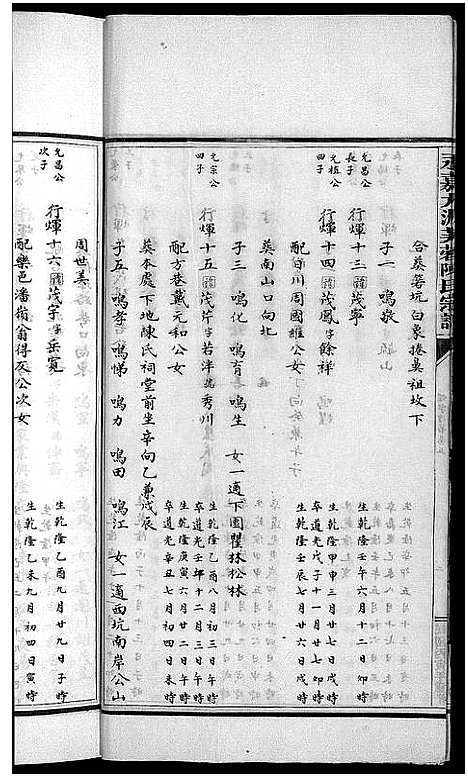 永嘉
陳氏宗譜
合葬箬坑白象捲鼻祖坟下
子一 鳴敬
允昌公
長子
行煇十三 諱茂寧
生乾隆壬午六月十二日卯時
允植公
四子
行煇十四 諱茂鳳字餘祥
生乾隆甲申三月廿七日戌時
卒道光戊子十一月廿七卯時
配白川周國維公女
生乾隆壬辰七月廿六日戌時
葬南山口向北
子三 鳴化 鳴育 鳴生 女一適下園瞿林松林
允宗公
四子
行煇十五 諱茂芹字若泮號秀川
生乾隆乙酉八月初三日午時
卒道光壬年十二月三日午時
配方巷戴元和公女
生乾隆庚寅六月廿二日午時
卒道光辛丑七月初四日未時
葬本處下地陳氏祠堂前坐辛向乙兼戌辰
子五 鳴孝 鳴悌 鳴力 鳴田 鳴江 女一適西坑南岸公山
周世美
允昌公
次子
行煇十六 諱茂守字岳寬
生乾隆乙酉九月廿九日子時
配樂邑潘嶺翁得灰公次女
生乾隆乙未九月初四日寅時